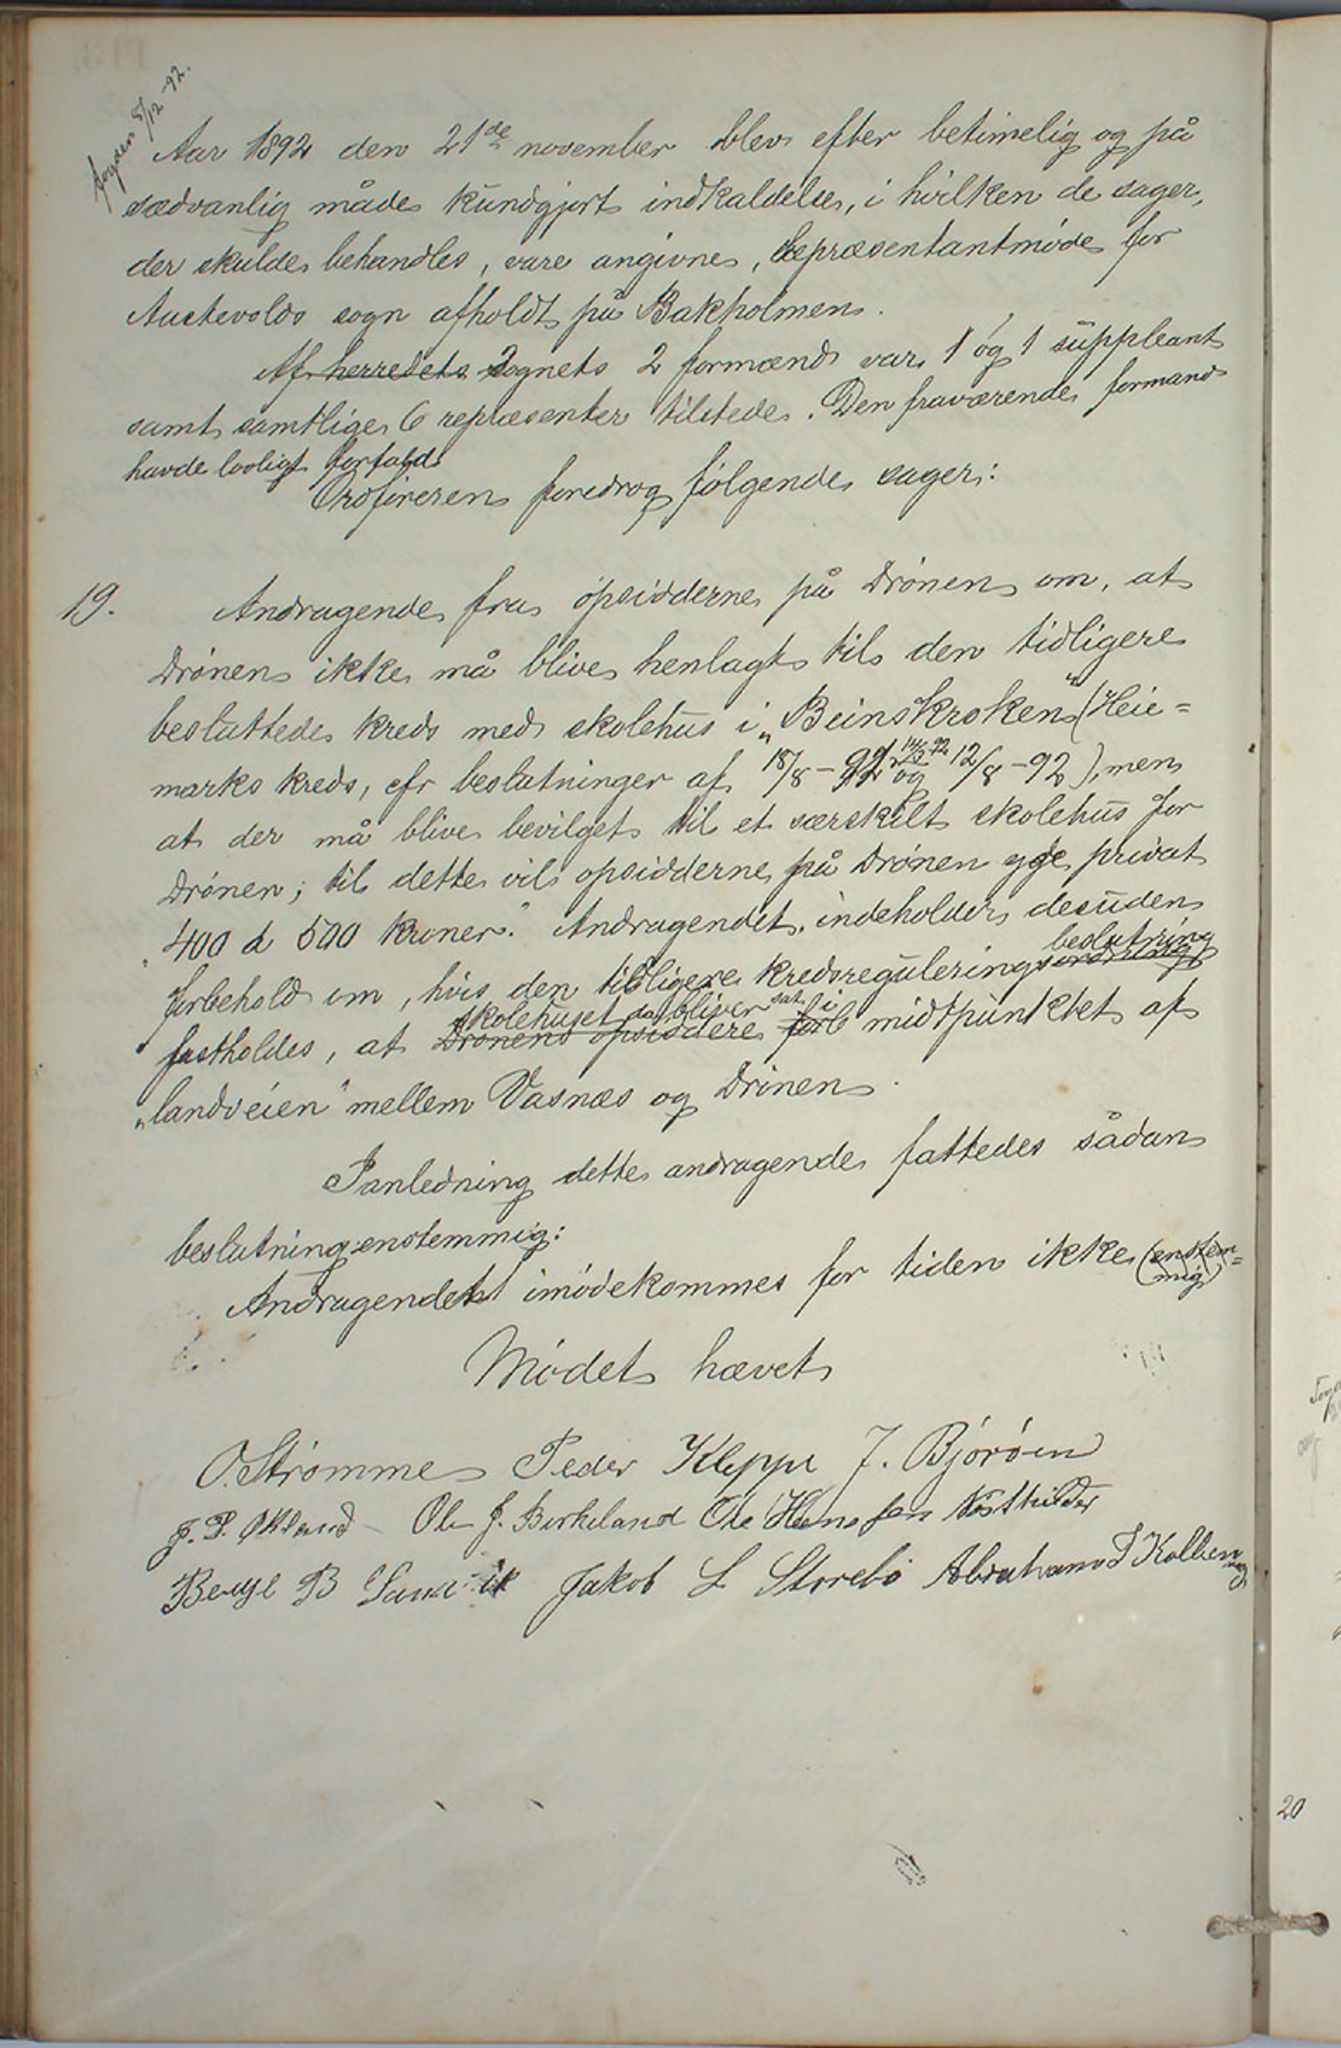 fogden 5/12-92.
Aar 1892 den 21de november blev efter betimelig og på
sædvanlig måde kundgjort indkaldelse, i hvilken de sager,
der skulde behandles, vare angivne, repræsentantmøde for
Austevolds sogn afholdt på Bakholmen.
Af herredets Sognets 2 formænd var 1 og 1 suppleant
samt samtlige 6 repræsenter tilstede. Den fraværende formand
havde lovligt forfald.
Ordføreren foredrog følgende sager:
19. Andragende fra opsidderne på Drønen om, at
Drønen ikke må blive henlagt til den tidligere
besluttede kreds med skolehus i „Beinskroken" (Heie=
marks kreds, cfr beslutninger af 18/8-92 og 12/8-92), men
at der må blive bevilget til et særskilt skolehus for
Drønen; til dette vil opsidderne på Drønen yde privat
„400 à 500 kroner." Andragendet indeholder desuden
beslutning
forbehold om, hvis den tidligere kredsregulerings
skolehuset da bliver sat i
fastholdes, at Drønens opsiddere midtpunktet af
„landveien" mellem Vasnæs og Drønen.
I anledning dette andragende fattedes sådan
beslutning enstemmig:
Andragendet imødekommes for tiden ikke (enstem=
mig)
Mødet hævet
O. Strømme Peder Kleppe J. Bjørøen
J. P. Økland Ole J. Birkeland Ole Hansen
Berge B Sandvik Jakob L Storebø Abraham J Kolbens
20